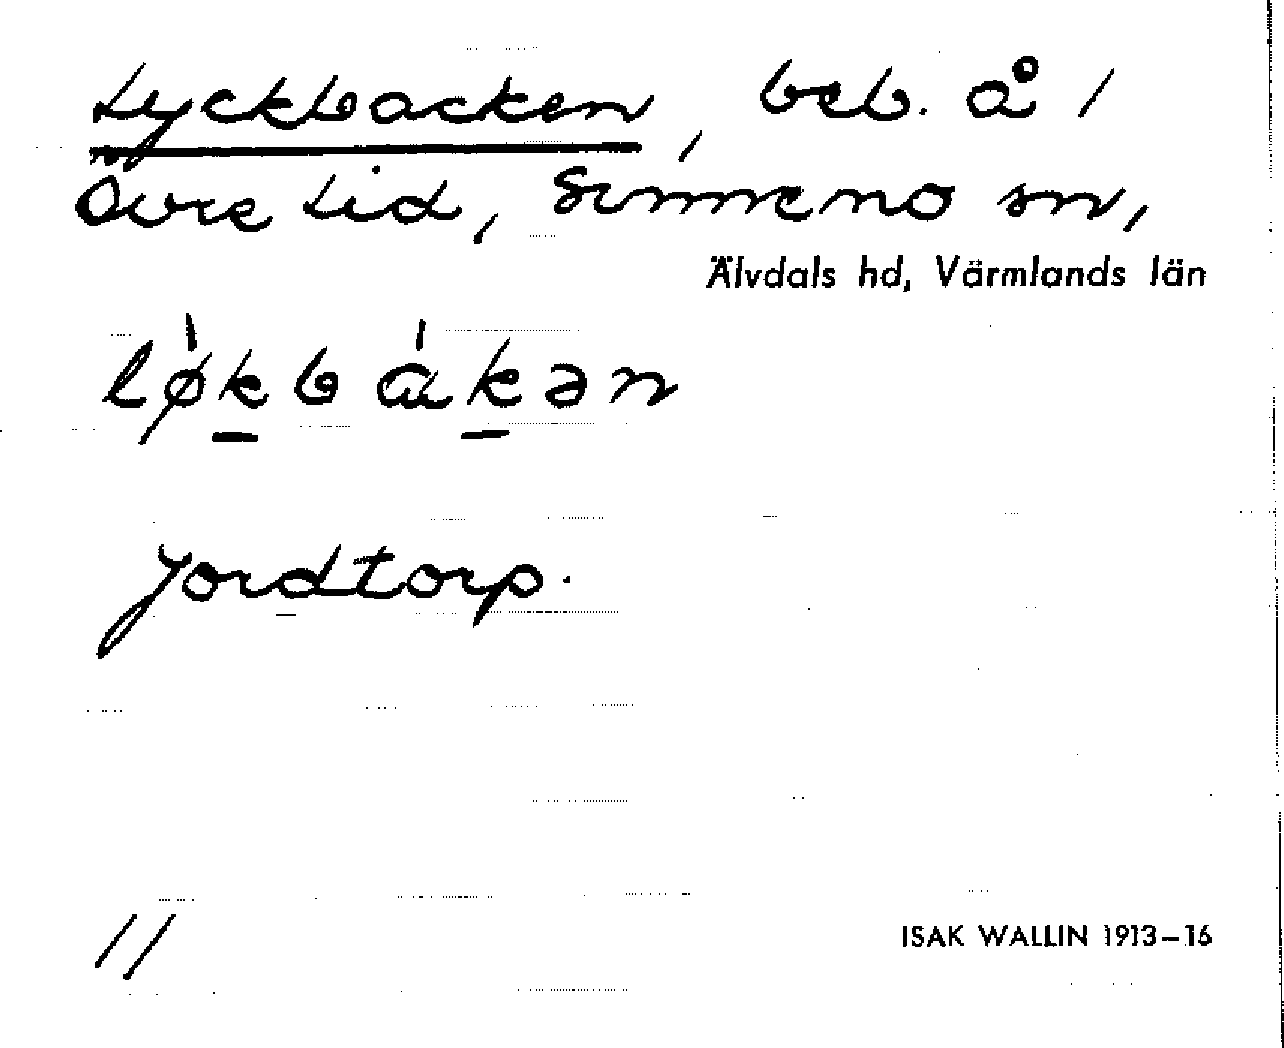 Lyckbacken, beb. å /
Övre Lid, Sunnemo sn,
Älvdals hd, Värmlands län
løkbakən
Jordtorp.
11
ISAK WALLIN 1913–16